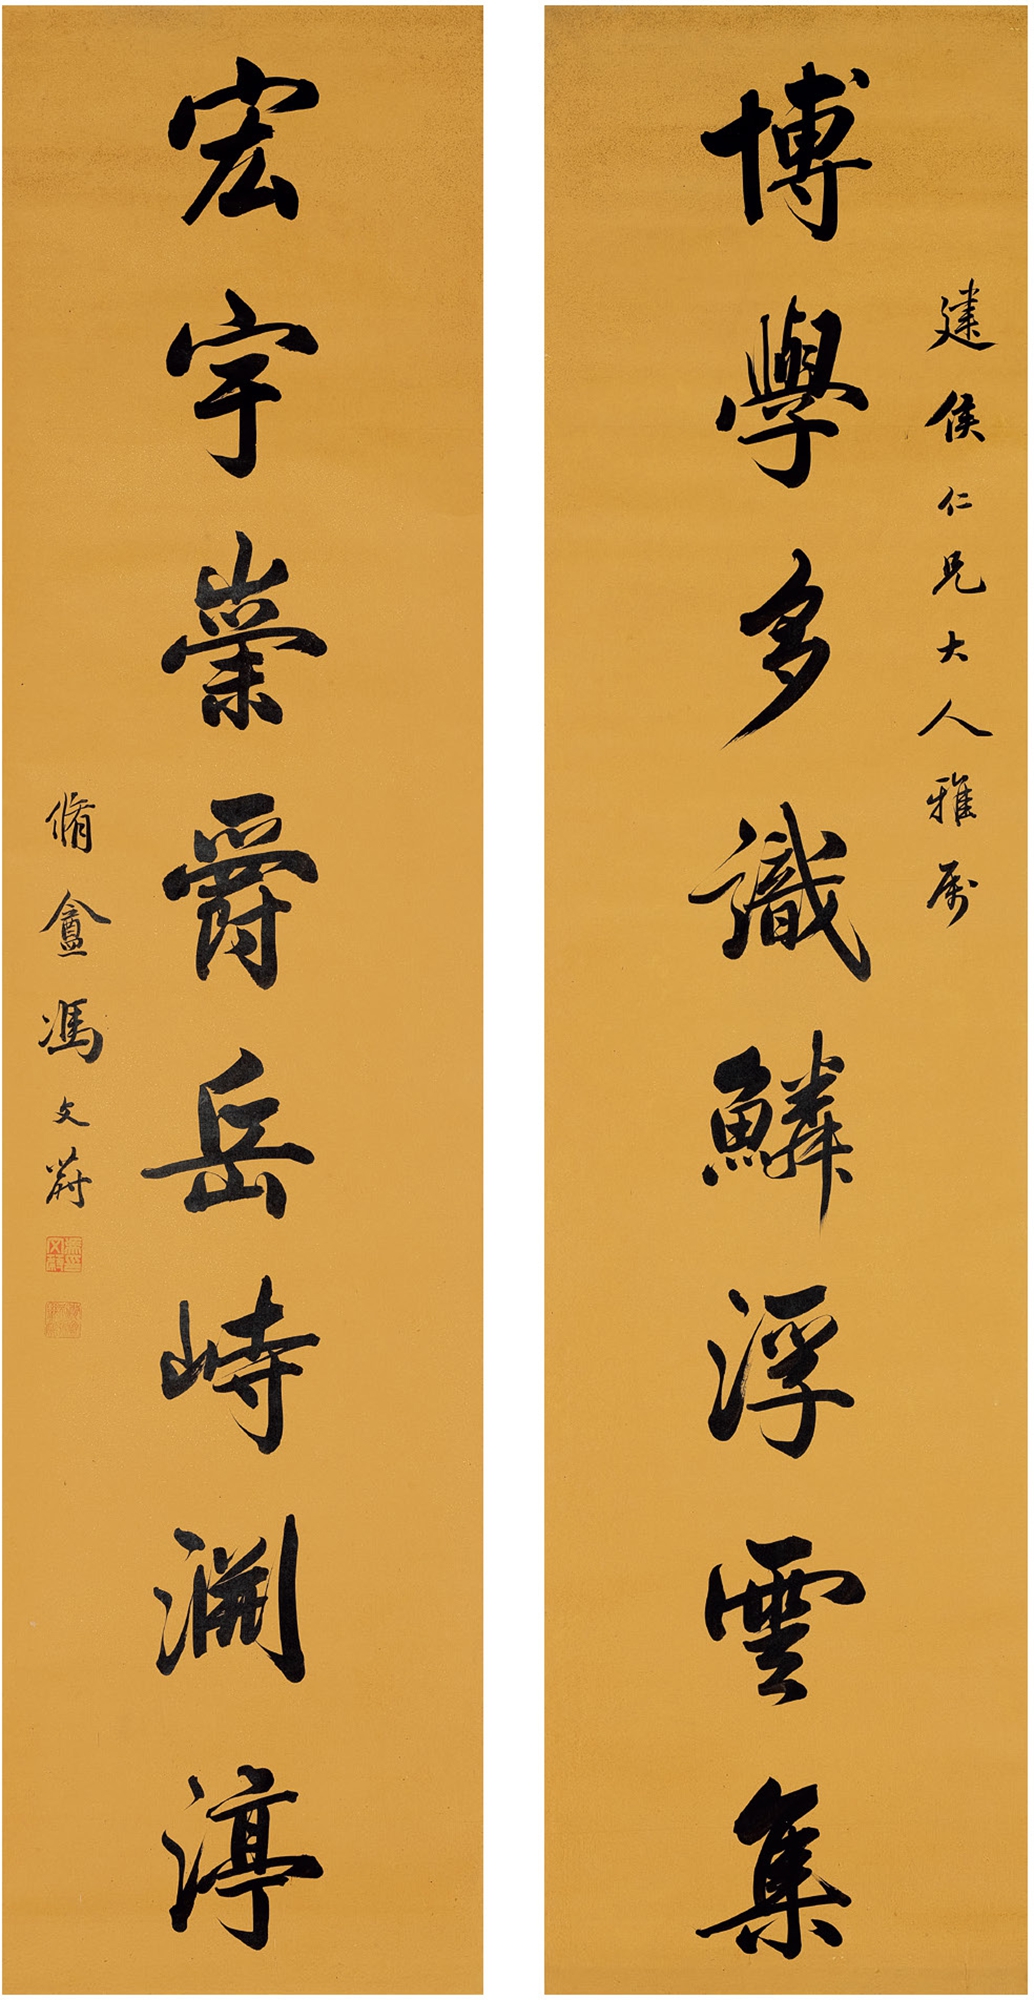 博學多識鱗浮雲集
建侯仁兄大人雅属
宏宇崇爵岳峙淵渟
脩盦馮文蔚